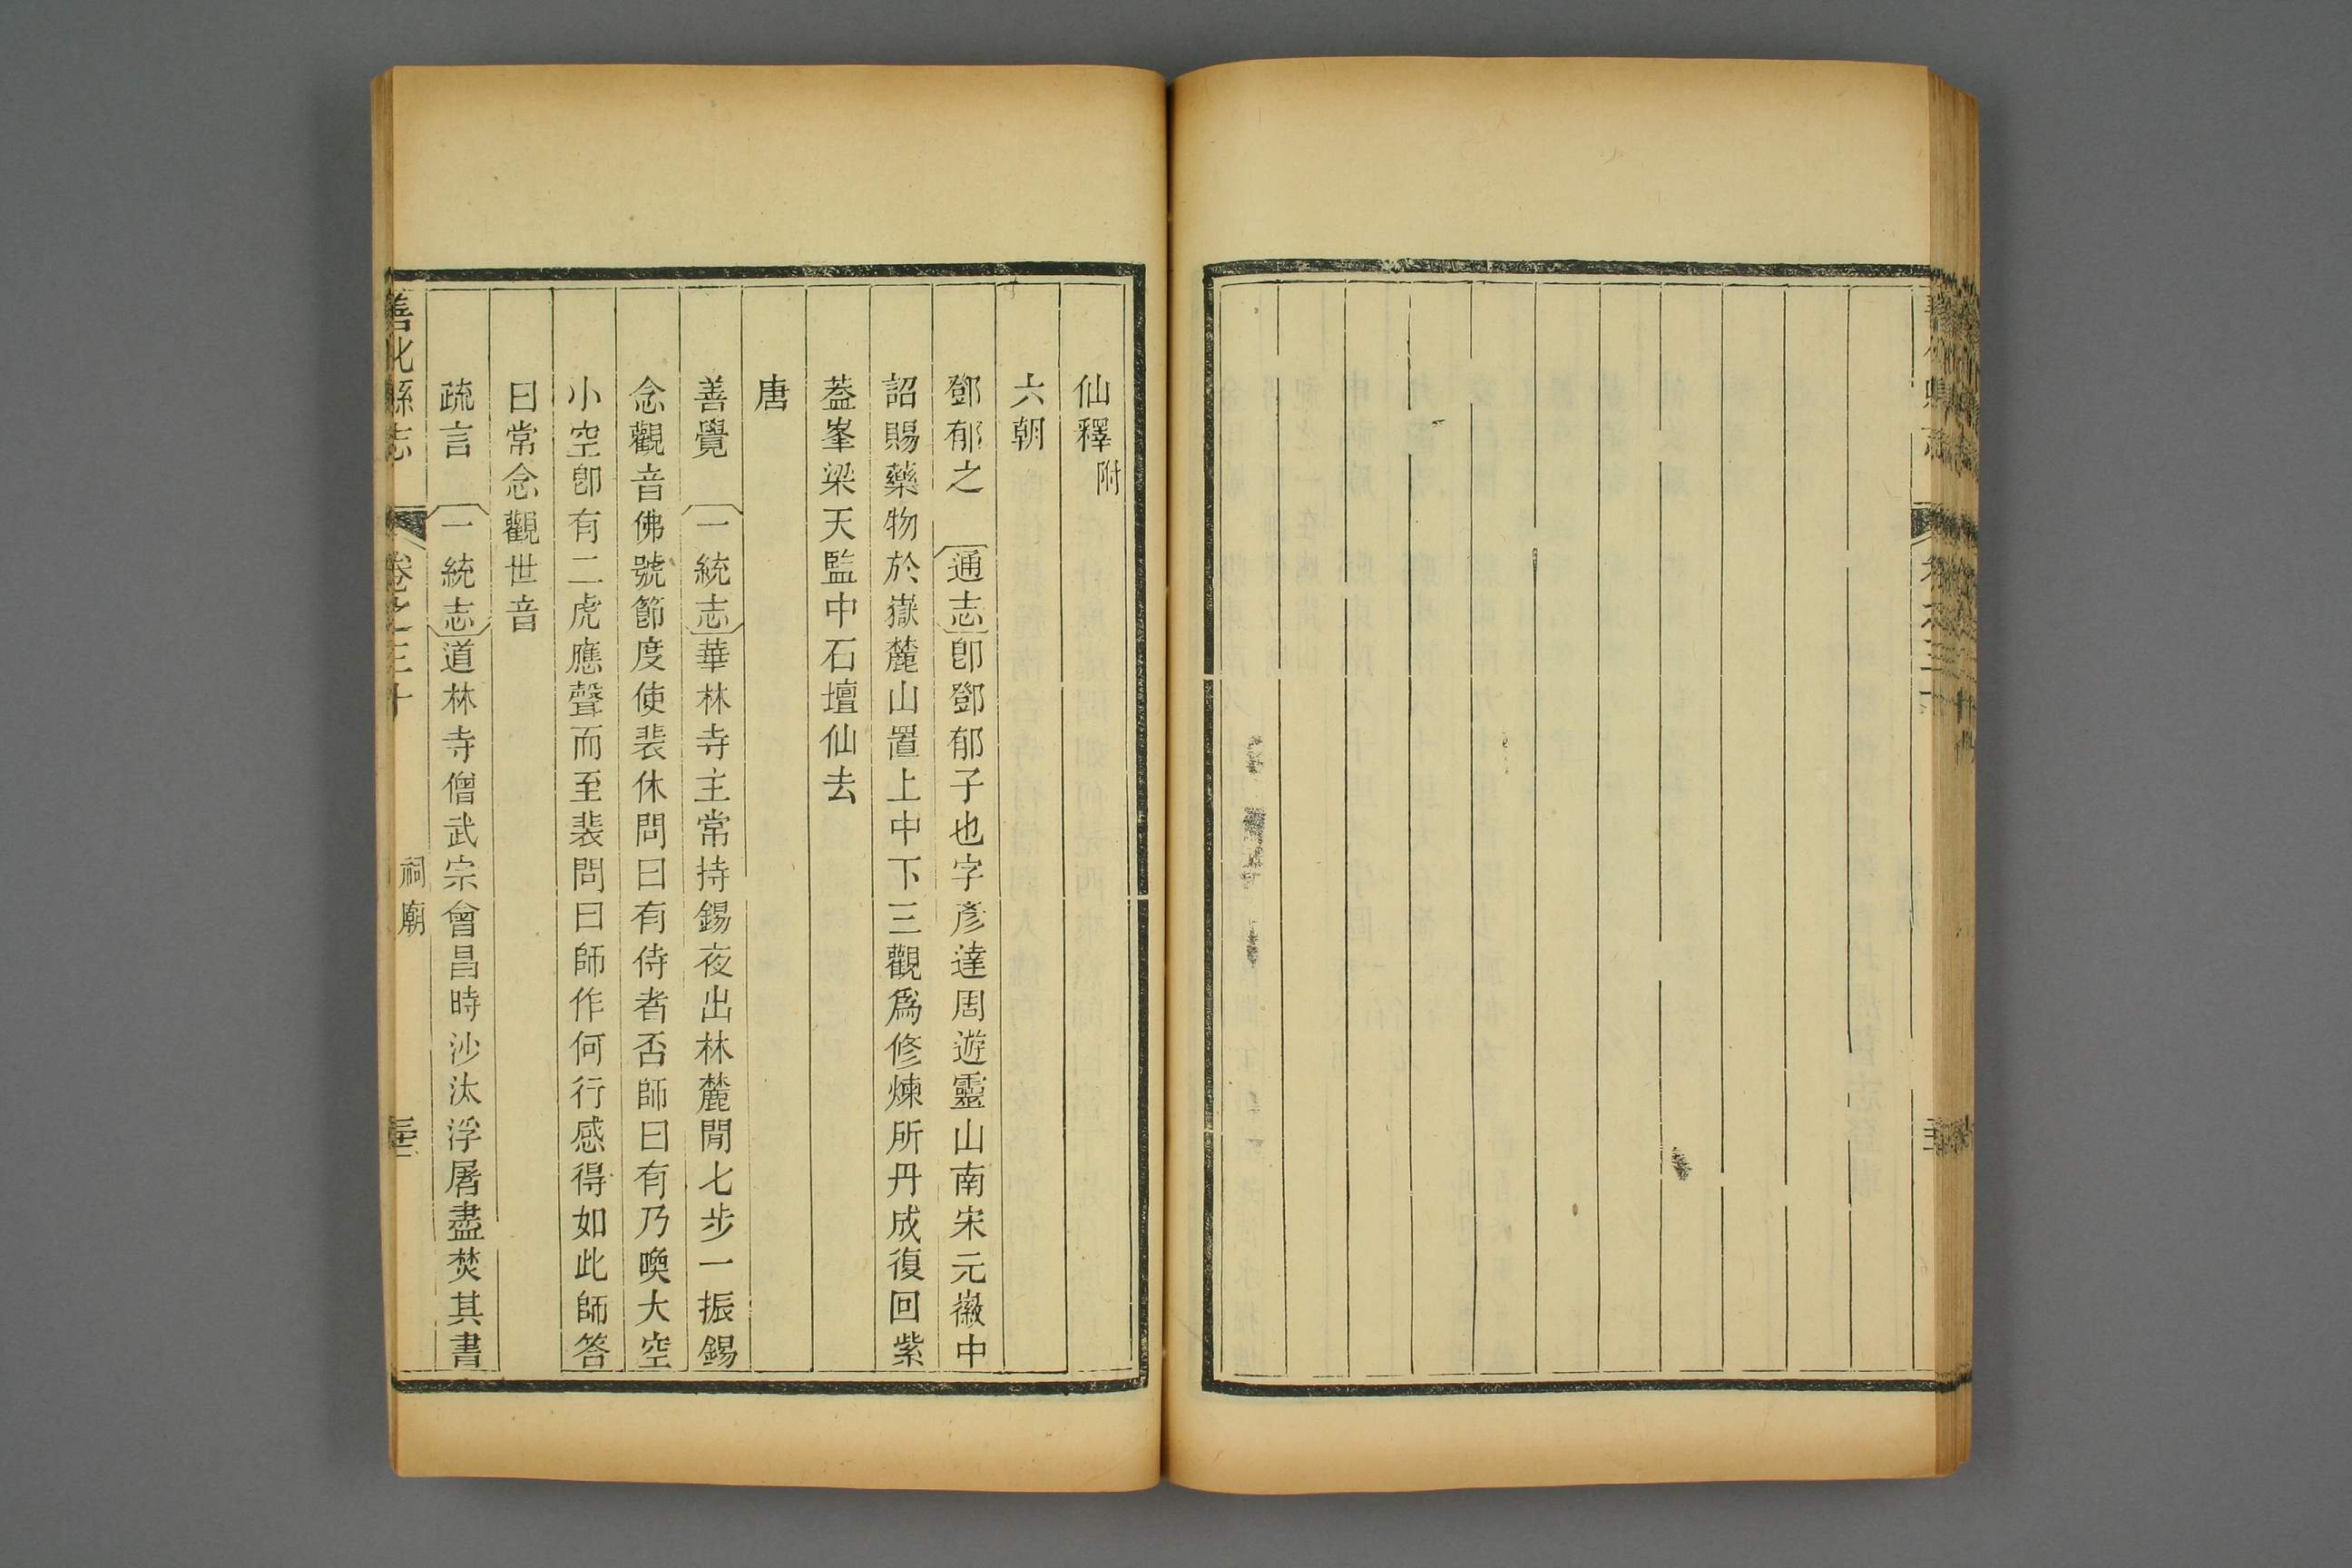 仙釋附
六朝
鄧郁之 通志卽鄧郁子也字彥達周遊靈山南宋元徽中
詔賜藥物於嶽麓山置上中下三觀爲修煉所丹成復回紫
葢峯梁天監中石壇仙去
唐
善覺 一統志華林寺主常持錫夜出林麓閒七步一振錫
念觀音佛號節度使裴休問曰有侍者否師曰有乃喚大空
小空卽有二虎應聲而至裴問曰師作何行感得如此師答
曰常念觀世音
疏言 一統志道林寺僧武宗會昌時沙汰浮屠盡焚其書
善化縣志 卷之三十 祠廟